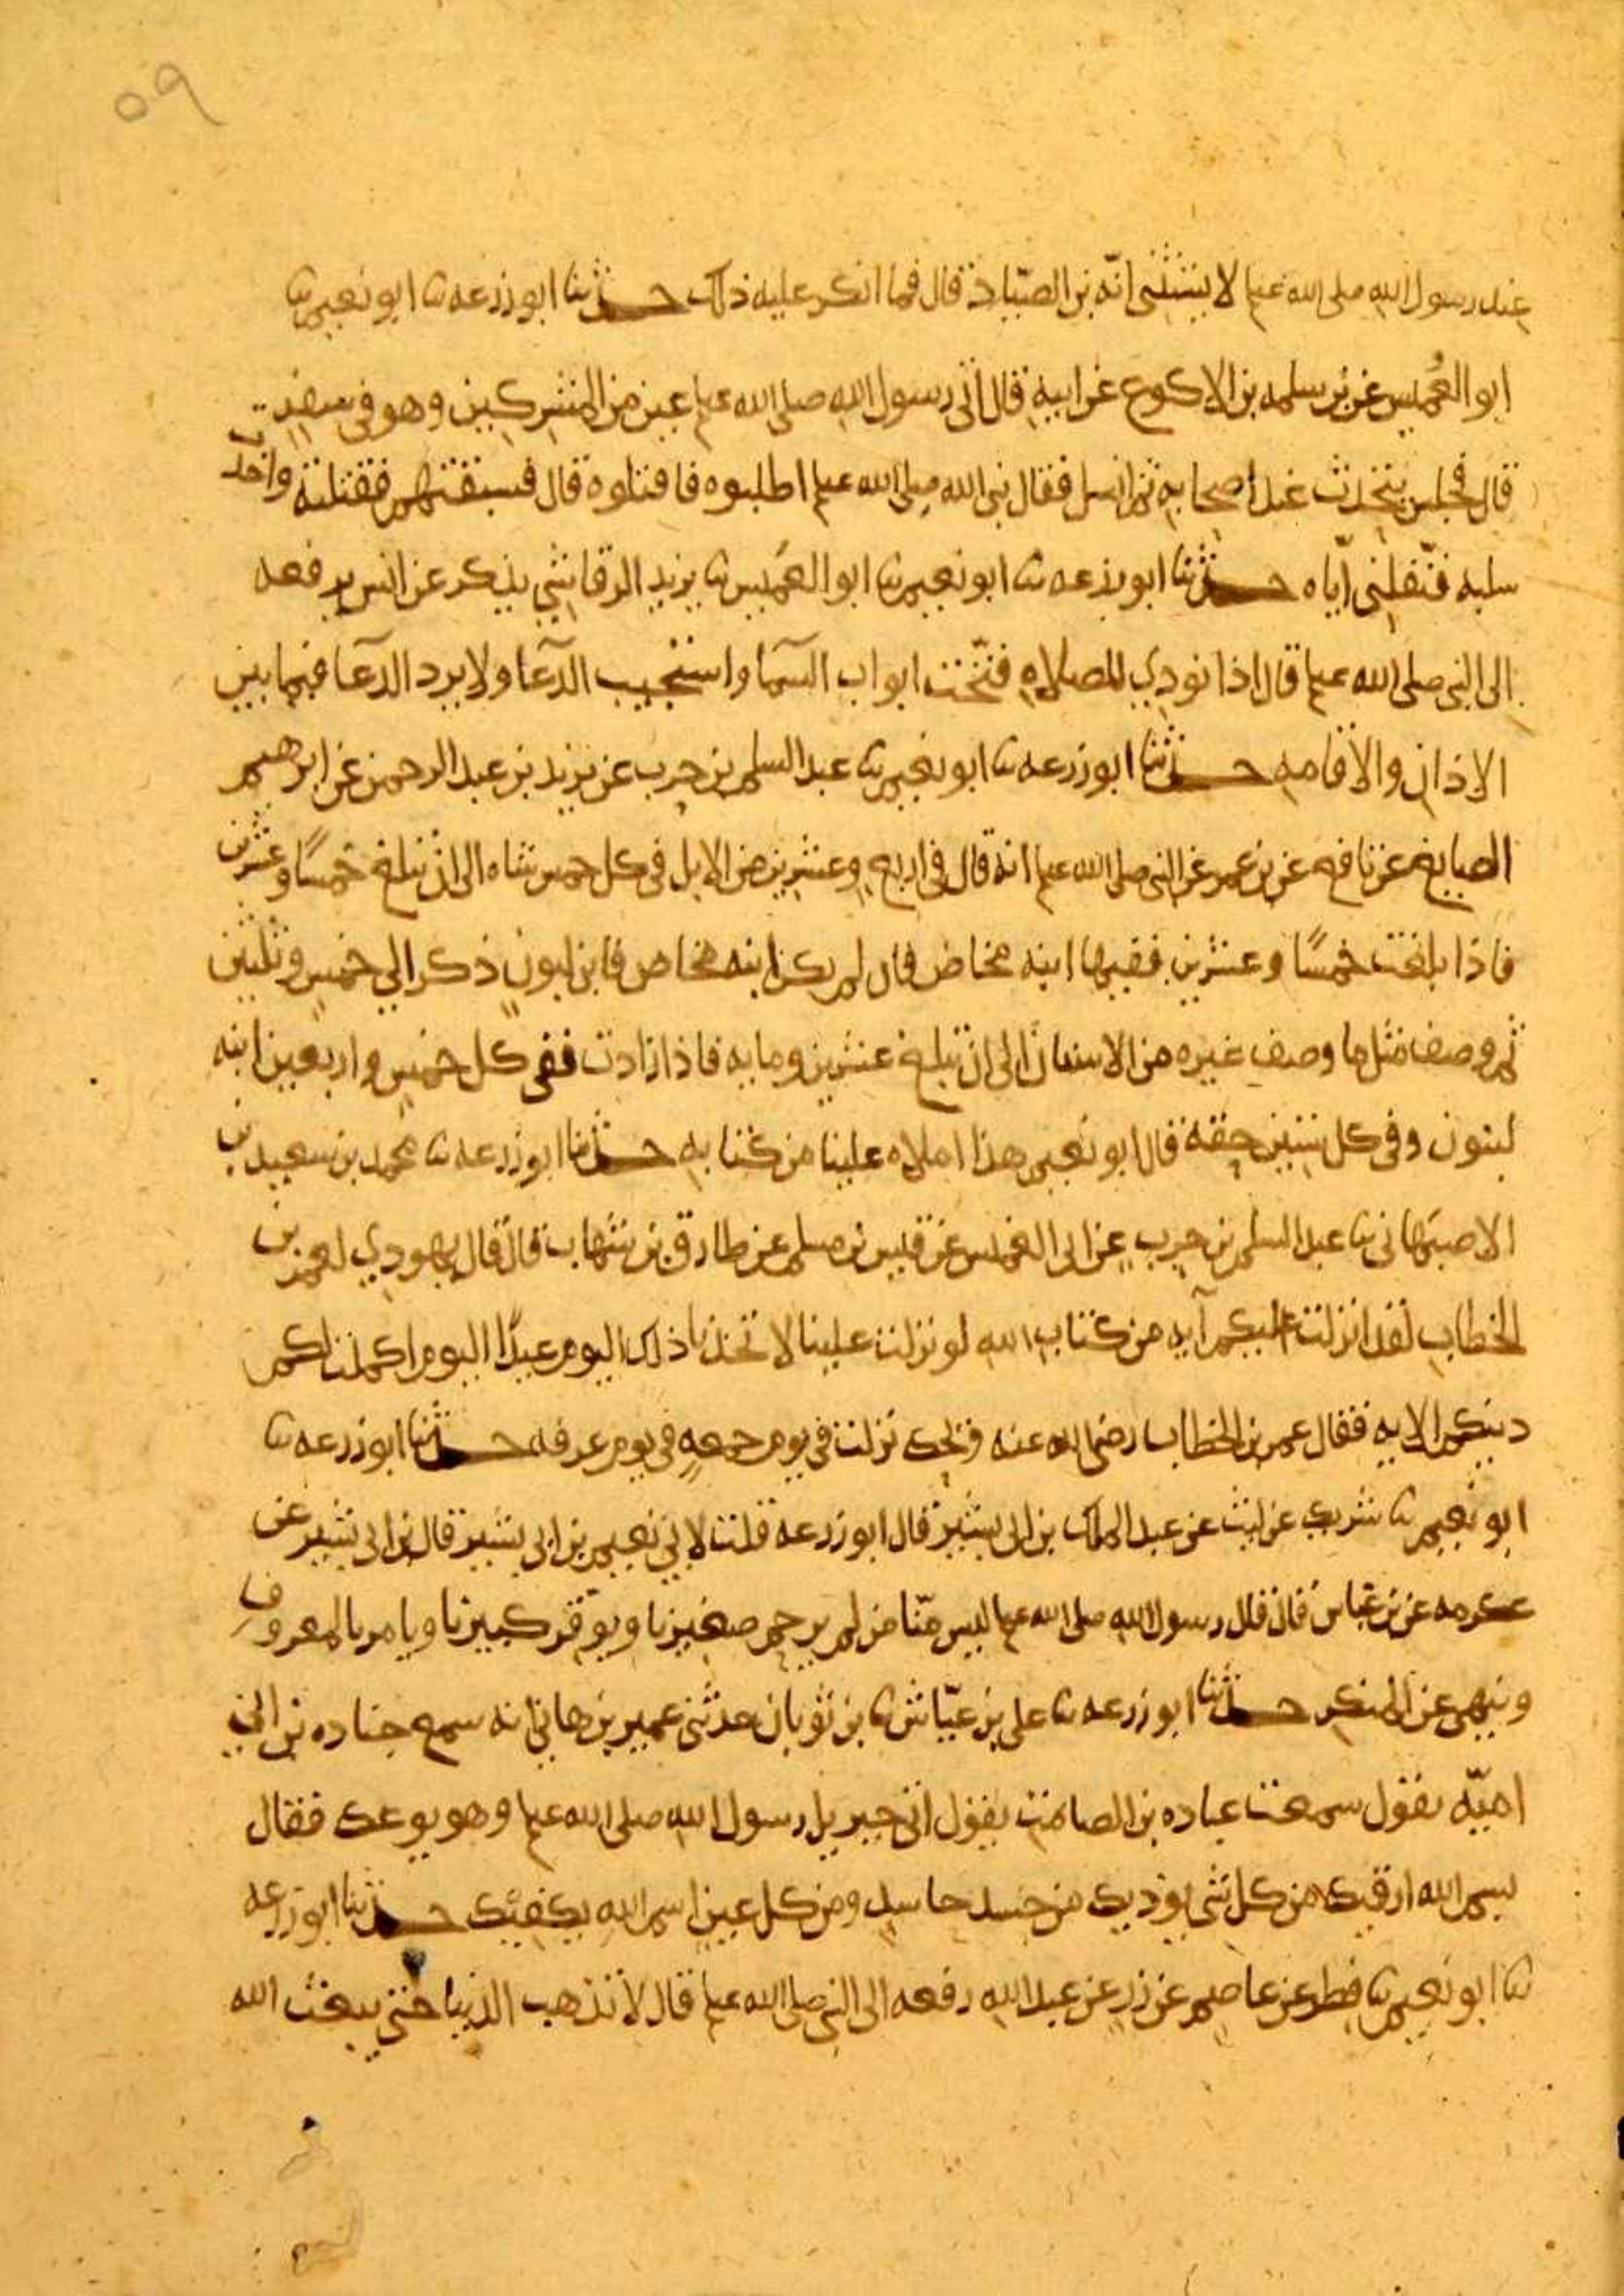 ٥٩
عند رسول الله صلى الله عليه وسلم لا يستثني انه بن الصياد قال فما انكر عليه ذلك حدثنا ابو زرعه نا ابو نعيم نا
ابو العميس عن بن سلمه بن الاكوع عن ابيه قال اتى رسول الله صلى الله عليه وسلم عين من المشركين وهو في سفر
قال فجلس يتحدث عند اصحابه ثم انسل فقال نبي الله صلى الله عليه وسلم اطلبوه فاقتلوه قال فسبقتهم فقتلته واخذت
سلبه فنفلني اياه حدثنا ابو زرعه نا ابو نعيم نا ابو العميس نا يزيد الرقاشي يذكر عن انس يرفعه
الى النبي صلى الله عليه وسلم قال اذا نودي للصلاه فتحت ابواب السما واستجيب الدعا ولا يرد الدعا فيما بين
الاذان والاقامه حدثنا ابو زرعه نا ابو نعيم نا عبد السلم بن حرب عن يزيد بن عبد الرحمن عن ابرهيم
الصايغ عن نافع عن بن عمر عن النبي صلى الله عليه وسلم انه قال في اربع وعشرين من الابل في كل خمس شاه الى ان تبلغ خمسا وعشرين
فاذا بلغت خمسا وعشرين ففيها ابنه مخاض فان لم يكن ابنه مخاض فابن لبون ذكر الي خمس وثلثين
ثم وصف مثل ما وصف غيره من الاسنان الى ان تبلغ عشرين ومايه فاذا زادت ففي كل خمس واربعين ابنه
لبون وفي كل ستين حقه قال ابو نعيم هذا املاه علينا من كتابه حدثنا ابو زرعه نا محمد بن سعيد بن
الاصبهاني نا عبد السلم بن حرب عن ابي العميس عن قيس بن مسلم عن طارق بن شهاب قال قال يهودي لعمر بن
الخطاب لقد انزلت عليكم آيه من كتاب الله لو نزلت علينا لاتخذنا ذلك اليوم عيدا اليوم اكملت لكم
دينكم الايه فقال عمر بن الخطاب رضي الله عنه ويحك نزلت في يوم جمعه في يوم عرفه حدثنا ابو زرعه نا
ابو نعيم نا شريك عن ليث عن عبد الملك بن ابي بشير قال ابو زرعه قلت لابي نعيم بن ابي بشير قال بن ابي بشير عن
عكرمه عن بن عباس قال قال رسول الله صلى الله عليه وسلم ليس منا من لم يرحم صغيرنا ويوقر كبيرنا ويامر بالمعروف
وينهى عن المنكر حدثنا ابو زرعه نا علي بن عياش نا بن ثوبان حدثني عمير بن هاني انه سمع جناده بن ابي
اميه يقول سمعت عباده بن الصامت يقول اتى جبريل رسول الله صلى الله عليه وسلم وهو يوعك فقال
بسم الله ارقيك من كل شي يوذيك من حسد حاسد ومن كل عين اسم الله يكفيك حدثنا ابو زرعه
نا ابو نعيم نا فطر عن عاصم عن زر عن عبد الله رفعه الى النبي صلى الله عليه وسلم قال لا تذهب الدنيا حتى يبعث الله